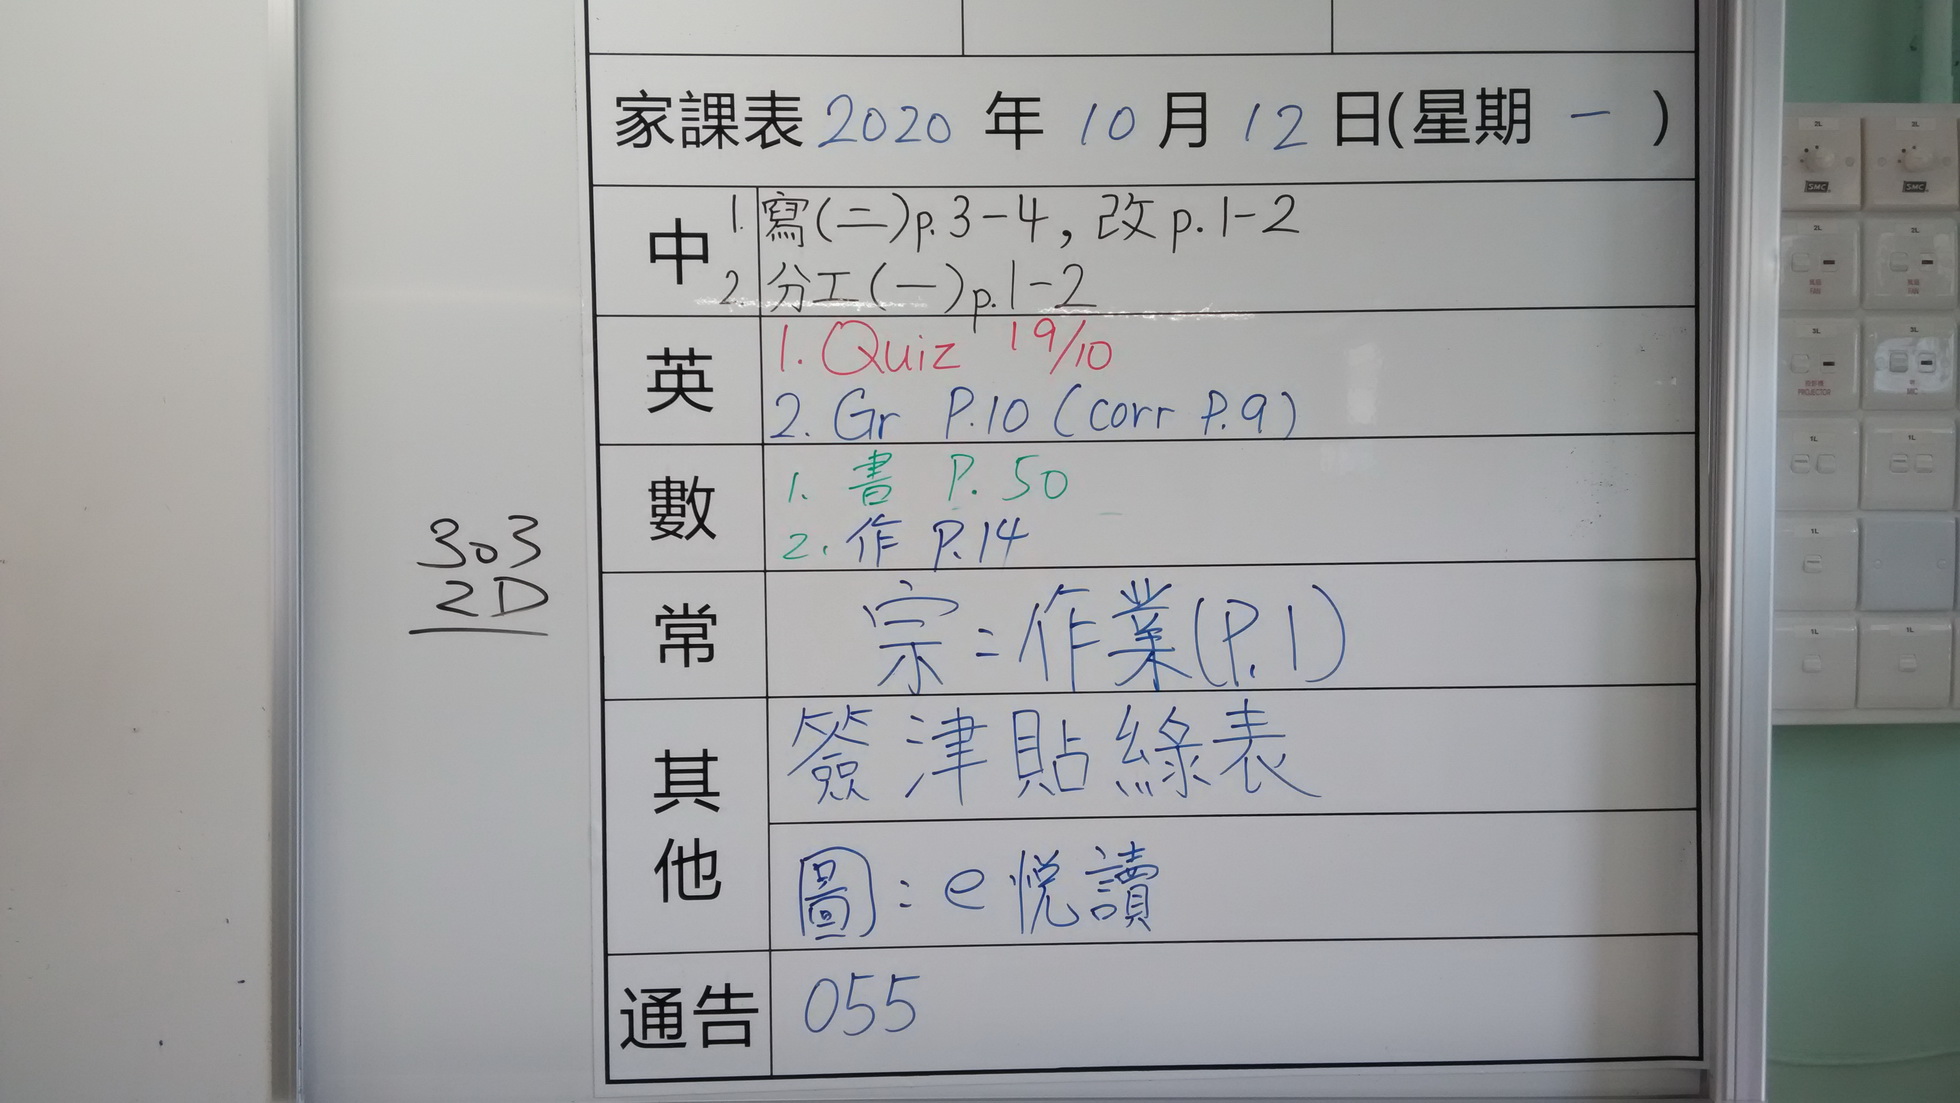 家課表 2020 年 10 月 12 日(星期 一 )
中
1. 寫(二)p.3-4, 改 p.1-2
2. 分工(一)p.1-2
英
1. Quiz 19/10
2. Gr P.10 (corr P.9)
數
1. 書 P. 50
2. 作 P.14
常
宗:作業(P.1)
其他
簽津貼綠表
圖:e悅讀
通告
055
303
2D
2L
2L
SMC
SMC
2L
2L
FAN
FAN
3L
3L
PROJECTOR
1L
1L
1L
1L
1L